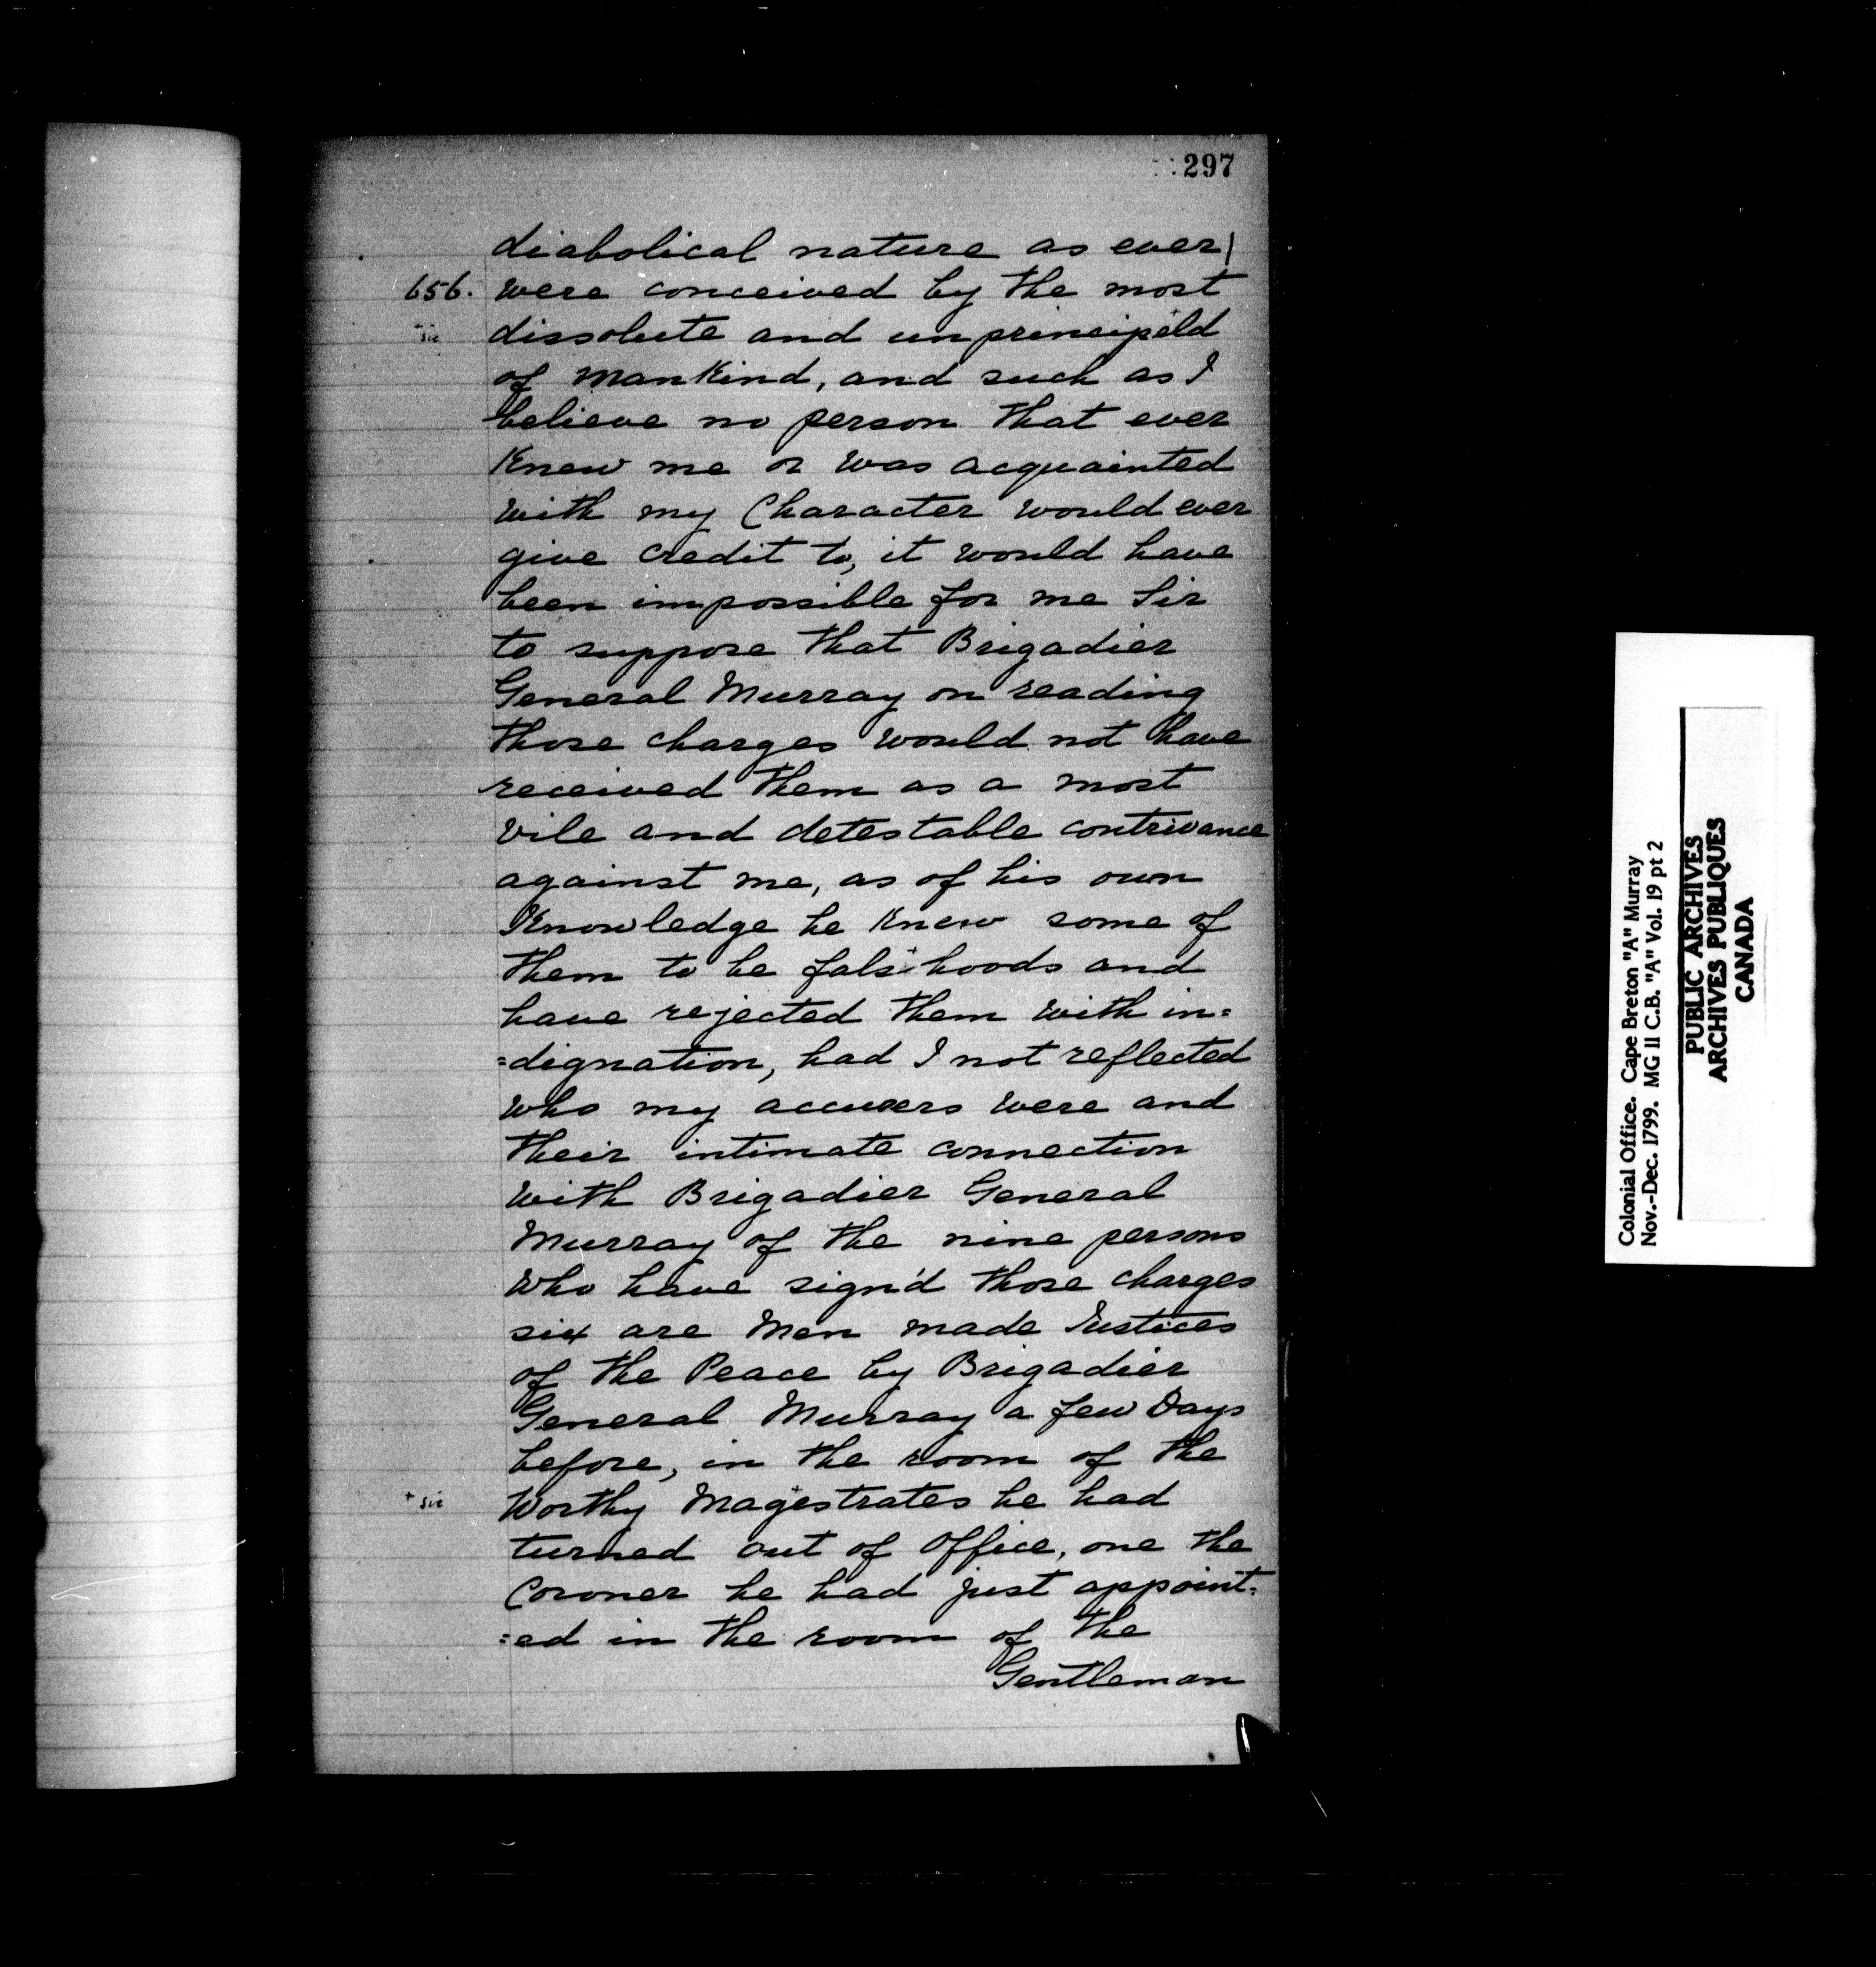 297
diabolical nature as ever |
656. were conceived by the most
+sic dissolute and unprincipeld
of Mankind, and such as I
believe no person that ever
Knew me or was acquainted
with my Character would ever
give credit to, it would have
been impossible for me Sir
to suppose that Brigadier
General Murray on reading
those charges would not have
received them as a most
vile and detestable contrivance
against me, as of his own
Knowledge he Knew some of
them to be falshoods and
have rejected them with in=
=dignation, had I not reflected
who my accusers were and
their intimate connection
with Brigadier General
Murray of the nine persons
who have sign'd those charges
six are Men made Justices
of the Peace by Brigadier
General Murray a few Days
before, in the room of the
+ sic Worthy Magestrates he had
turned out of Office, one the
Coroner he had just appoint=
=ed in the room of the
Gentleman
Colonial Office. Cape Breton "A" Murray
Nov.-Dec. 1799. MG 11 C.B. "A" Vol. 19 pt 2
PUBLIC ARCHIVES
ARCHIVES PUBLIQUES
CANADA